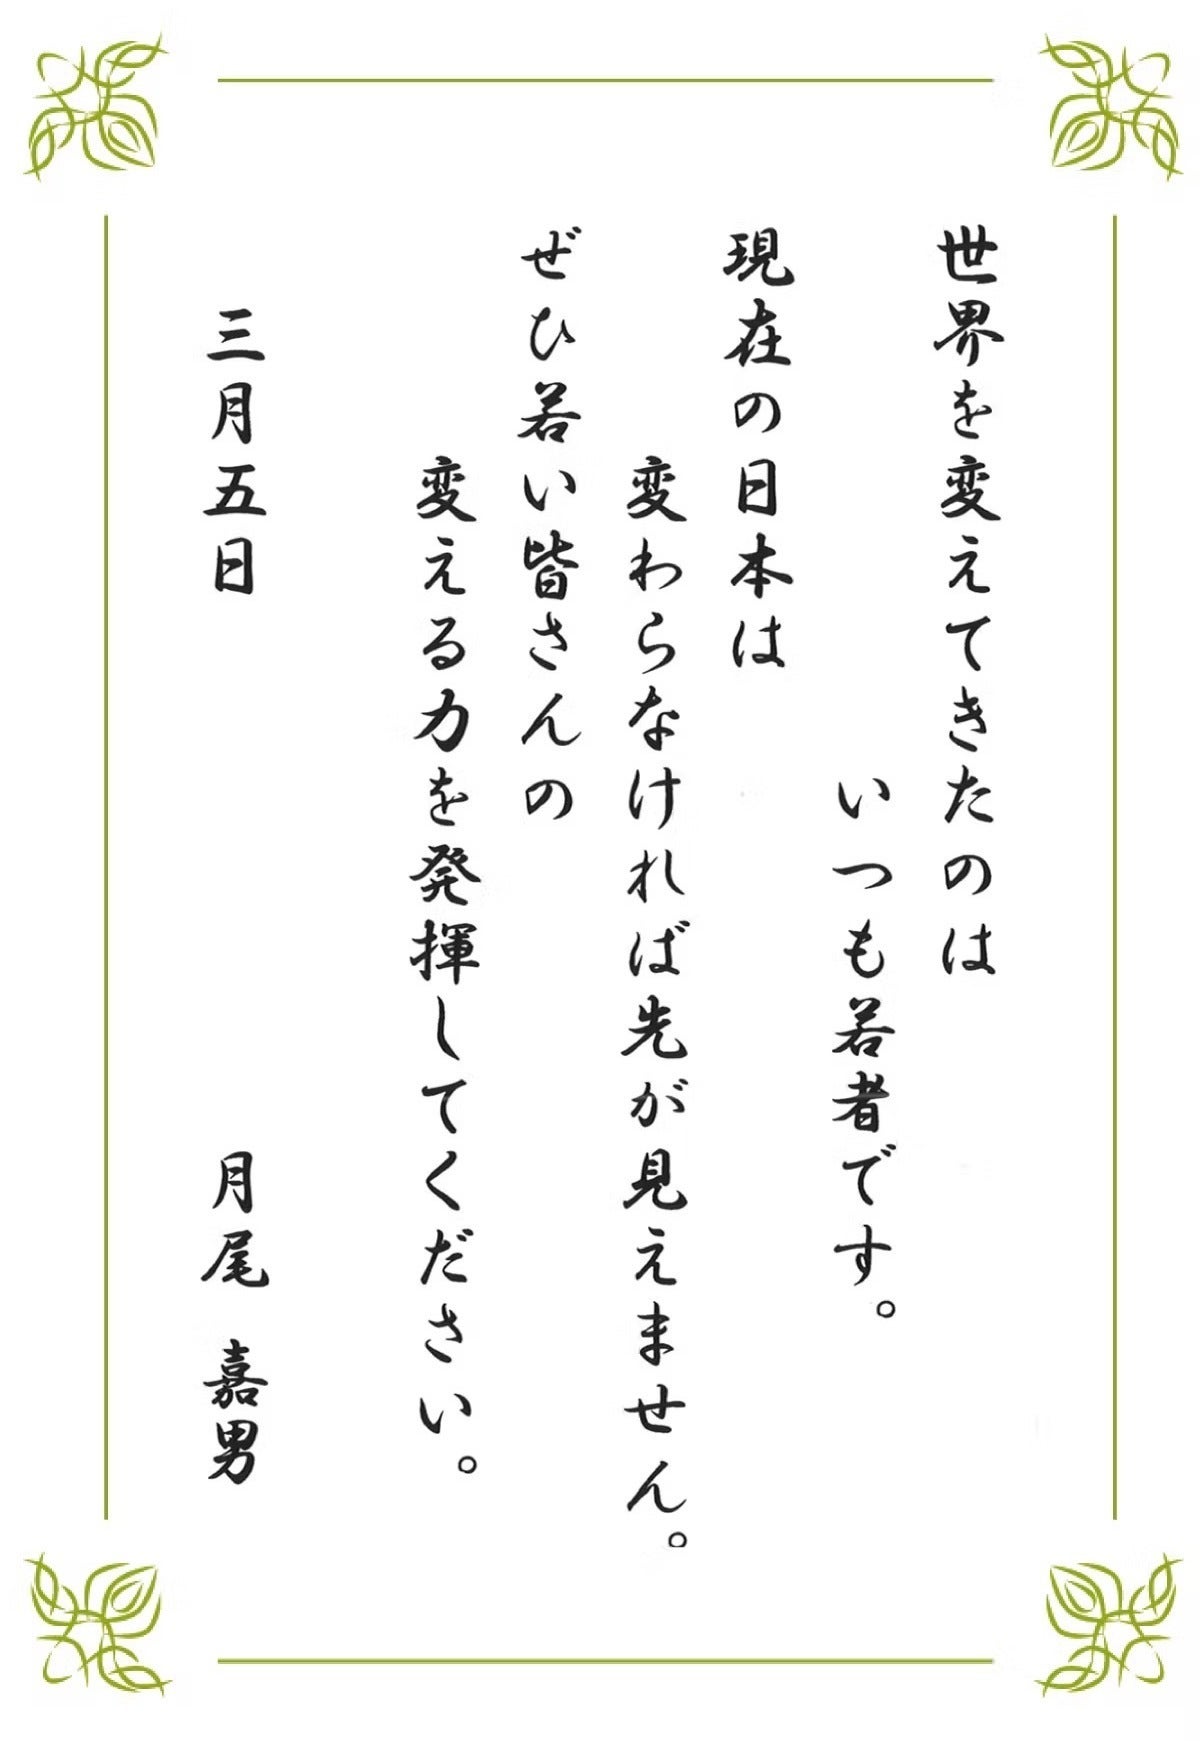 世界を変えてきたのは
いつも若者です。
現在の日本は
変わらなければ先が見えません。
ぜひ若い皆さんの
変える力を発揮してください。
三月五日
月尾 嘉男